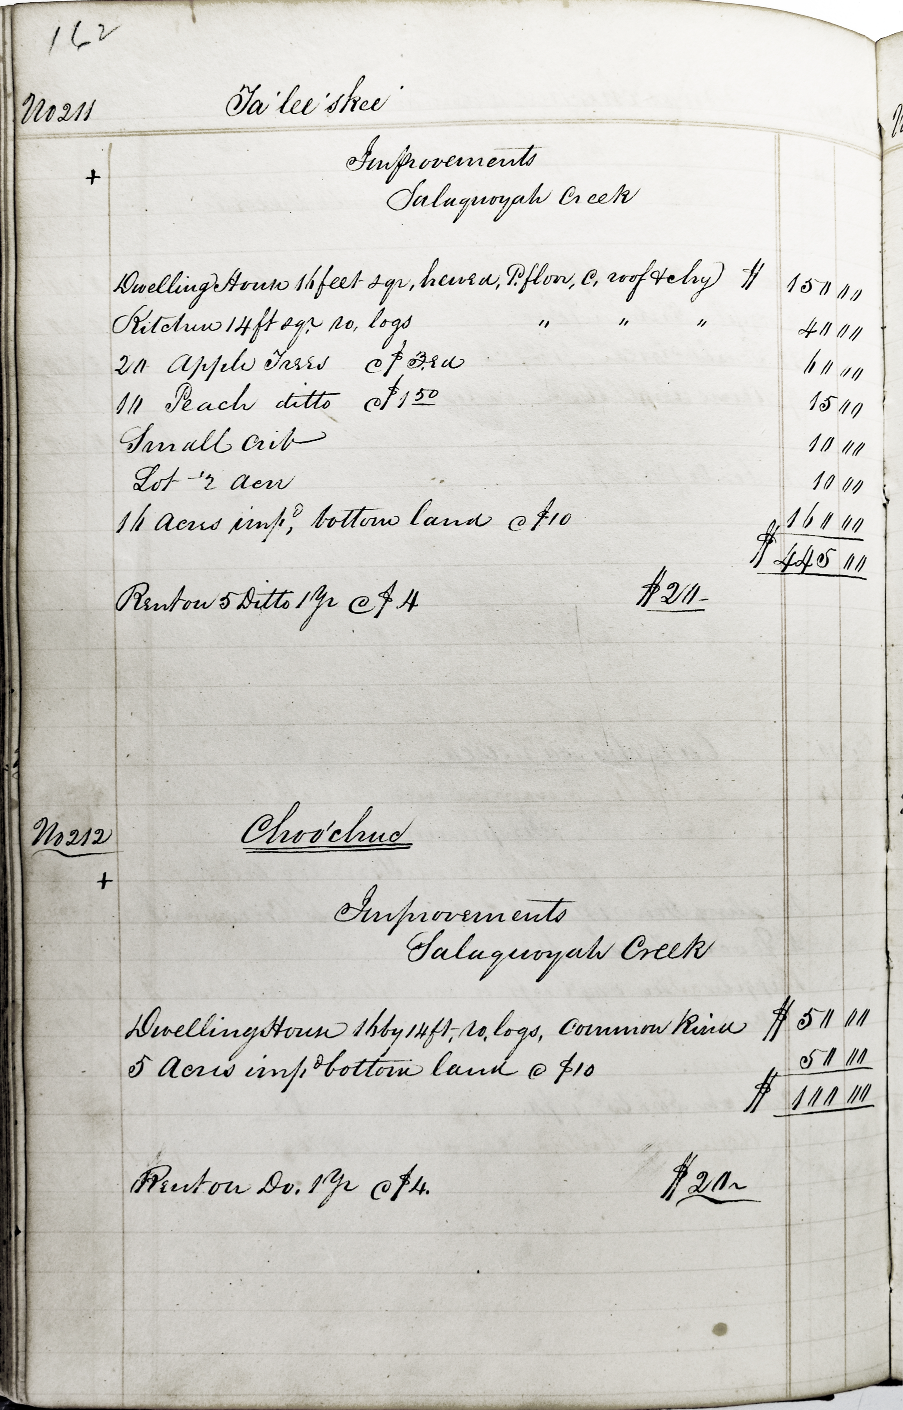 162
No 211 Ta'lee'skee'
+
Improvements
Salaquoyah Creek
Dwelling House 16 feet sqr, hewed, P. floor, C, roof & chy) $ 150 00
Kitchen 14 ft sqr. ro, logs " " " 40 00
20 Apple Trees @ $ 3 60 00
10 Peach ditto @ $1 50 15 00
Small crib 10 00
Lot - ½ acre 10 00
16 Acres imp,d bottom land @ $10 160 00
$ 445 00
Rent on 5 Ditto 1 Yr @ $ 4 $ 20 -
No 212 Choo'chuc
+
Improvements
Salaquoyah Creek
Dwelling House 16 by 14 ft, ro, logs, common kind $ 50 00
5 Acres imp,d bottom land @ $10 50 00
$ 100 00
Rent on Do. 1 Yr @ $4. $ 20 ~